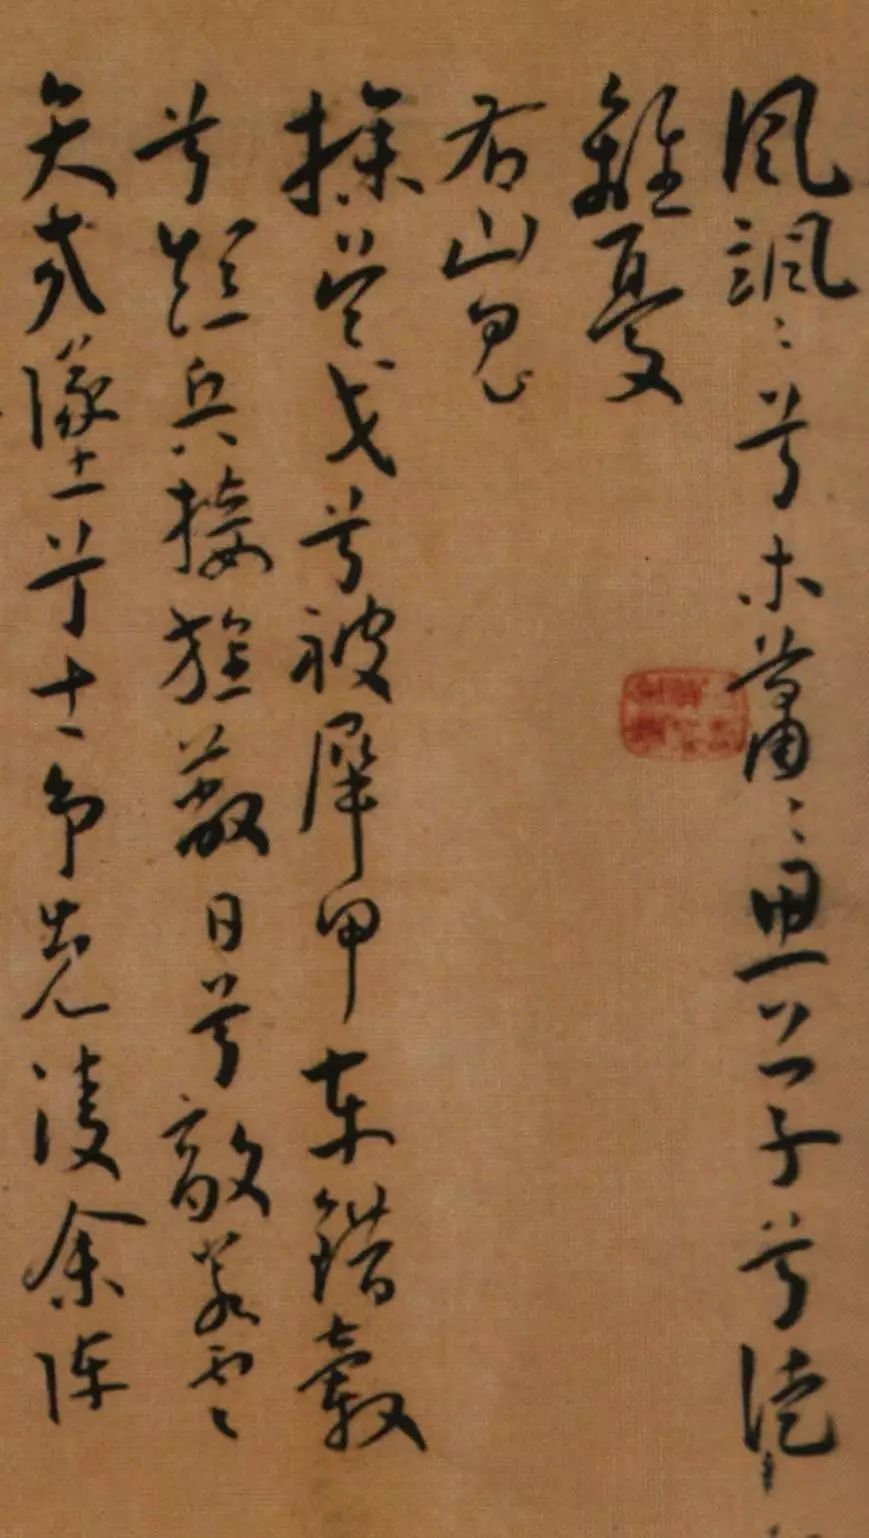 風颯〻兮木蕭〻思公子兮徒
離憂
右山鬼
操吳戈兮被犀甲車錯轂
兮短兵接旌蔽日兮敵若雲
矢交墜兮士爭先凌余陣